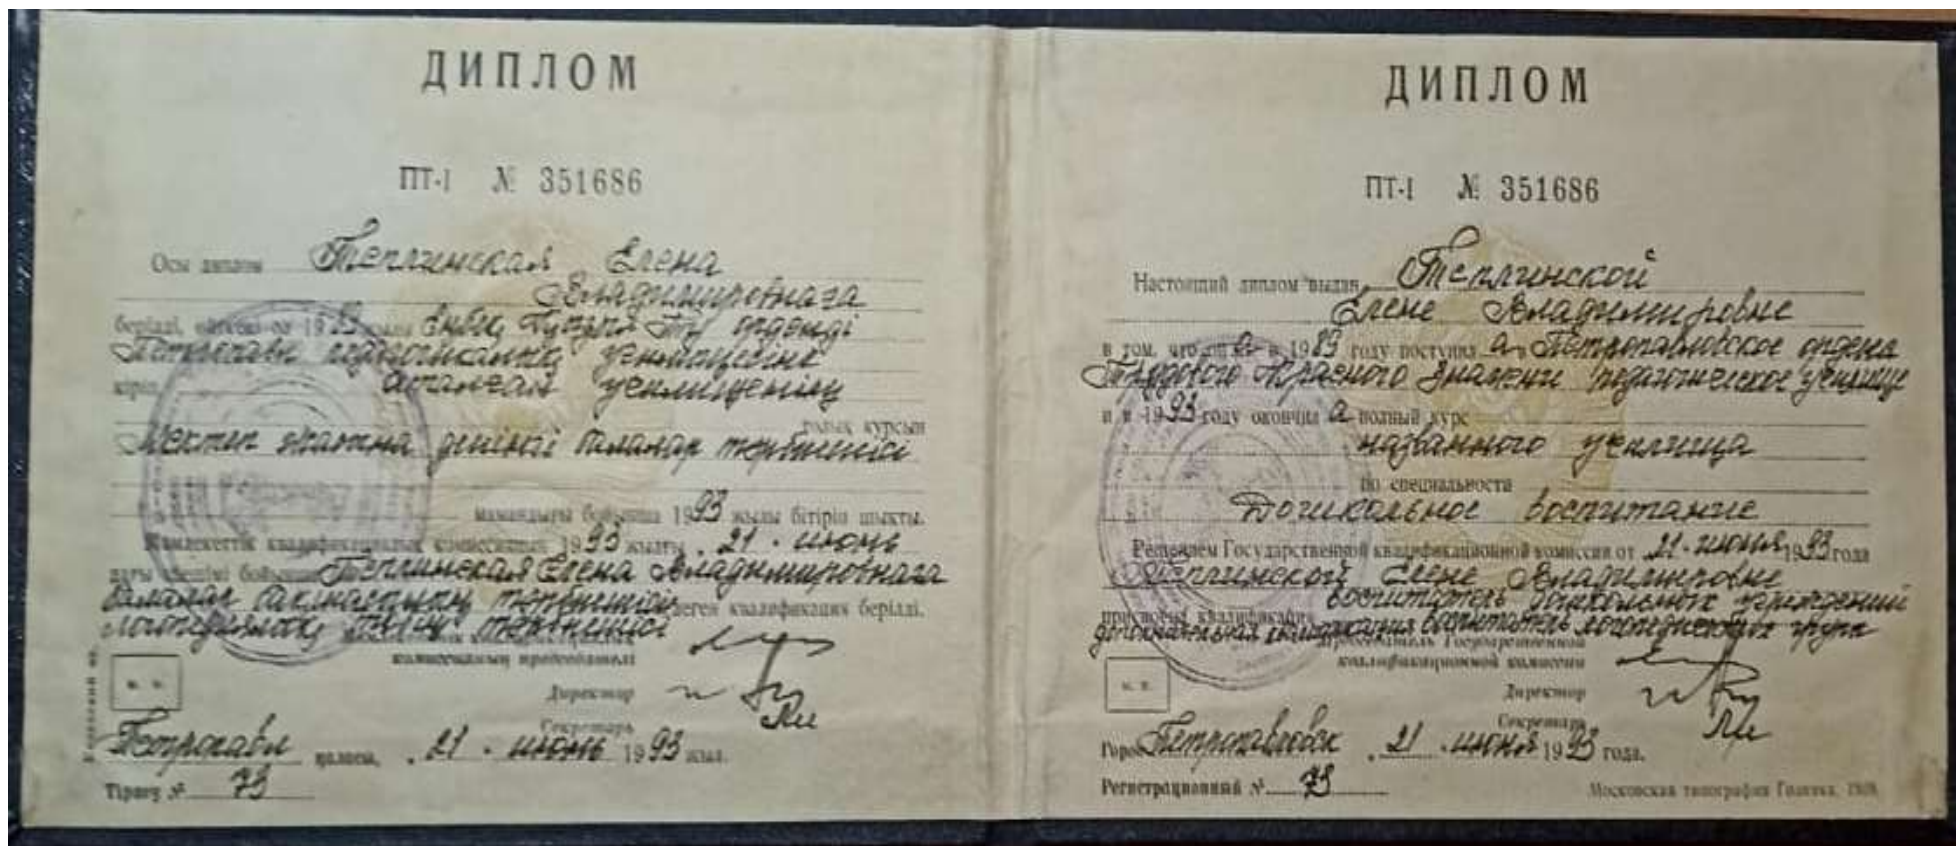 ДИПЛОМ
ПТ-I № 351686
Осы диплом Теплинская Елена
Владимировнаға
берілді, өйткені ол 1989 жылы Еңбек Қызыл Ту орденді
Петропавл педагогикалық училищесіне
кіріп, аталған училищенің
толық курсын
Мектеп жасына дейінгі балалар тәрбиешісі
мамандығы бойынша 1993 жылы бітіріп шықты.
Мемлекеттік квалификациялық комиссияның 1993 жылғы „21“ июнь
дағы шешімі бойынша Теплинская Елена Владимировнаға
балалар бақшасының тәрбиешісі деген квалификация берілді.
логопедиялық тәрбиешісі
комиссияның председателі
Директор
Секретарь
Петропавл қаласы, „21“ июнь 1993 жыл.
Тіркеу № 73
ДИПЛОМ
ПТ-I № 351686
Настоящий диплом выдан Теплинской
Елене Владимировне
в том, что она в 1989 году поступила в Петропавловское ордена
Трудового Красного Знамени педагогическое училище
и в 1993 году окончила полный курс
названного училища
по специальности
Дошкольное воспитание
Решением Государственной квалификационной комиссии от „21“ июня 1993 года
Теплинской Елене Владимировне
присвоена квалификация воспитатель дошкольных учреждений
дополнительная квалификация воспитатель логопедических групп
Председатель Государственной
квалификационной комиссии
Директор
Секретарь
М. П.
Город Петропавловск „21“ июня 1993 года.
Регистрационный № 73
Московская типография Гознака.